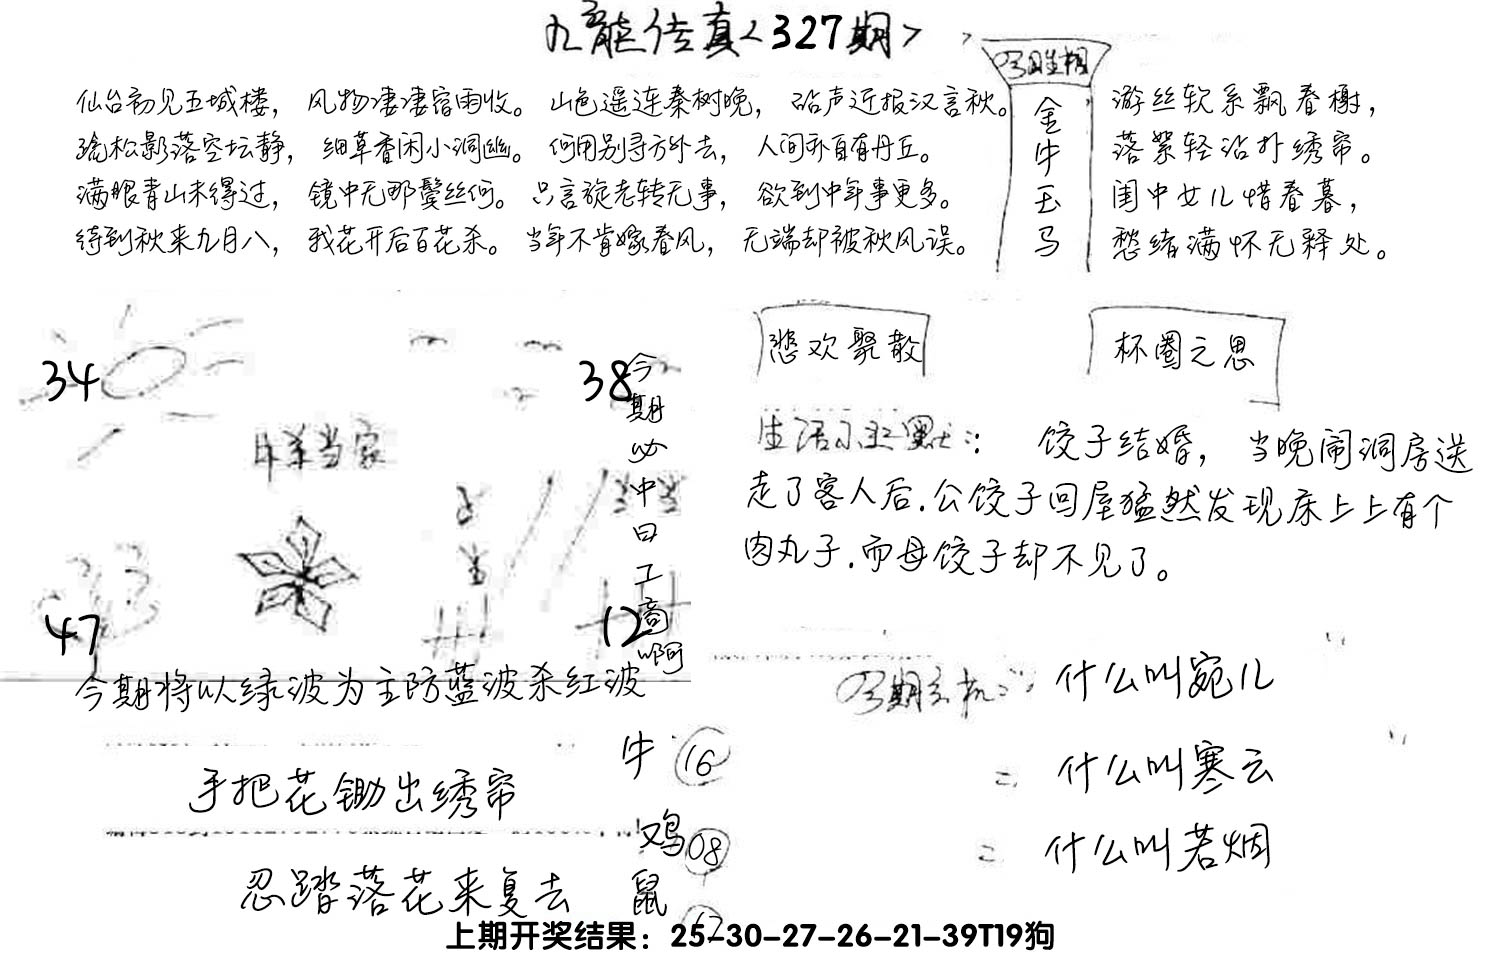 九龍传真<327期>
仙台初见五城楼，风物凄凄宿雨收。山色遥连秦树晚，砧声近报汉宫秋。
疏松影落空坛静，细草香闲小洞幽。何用别寻方外去，人间亦自有丹丘。
满眼青山未得过，镜中无那鬓丝何。只言旋老转无事，欲到中年事更多。
待到秋来九月八，我花开后百花杀。当年不肯嫁春风，无端却被秋风误。
金牛玉马
游丝软系飘春榭，
落絮轻沾扑绣帘。
闺中女儿惜春暮，
愁绪满怀无释处。
34
38
47
12
今期必中曰工商啊
今期将以绿波为主防蓝波杀红波
悲欢聚散
杯圈之思
饺子结婚，当晚闹洞房送
走了客人后.公饺子回屋猛然发现床上上有个
肉丸子.而母饺子却不见了。
什么叫宛儿
= 什么叫寒云
= 什么叫若烟
手把花锄出绣帘
忍踏落花来复去
牛 16
鸡 08
鼠
上期开奖结果：25-30-27-26-21-39T19狗